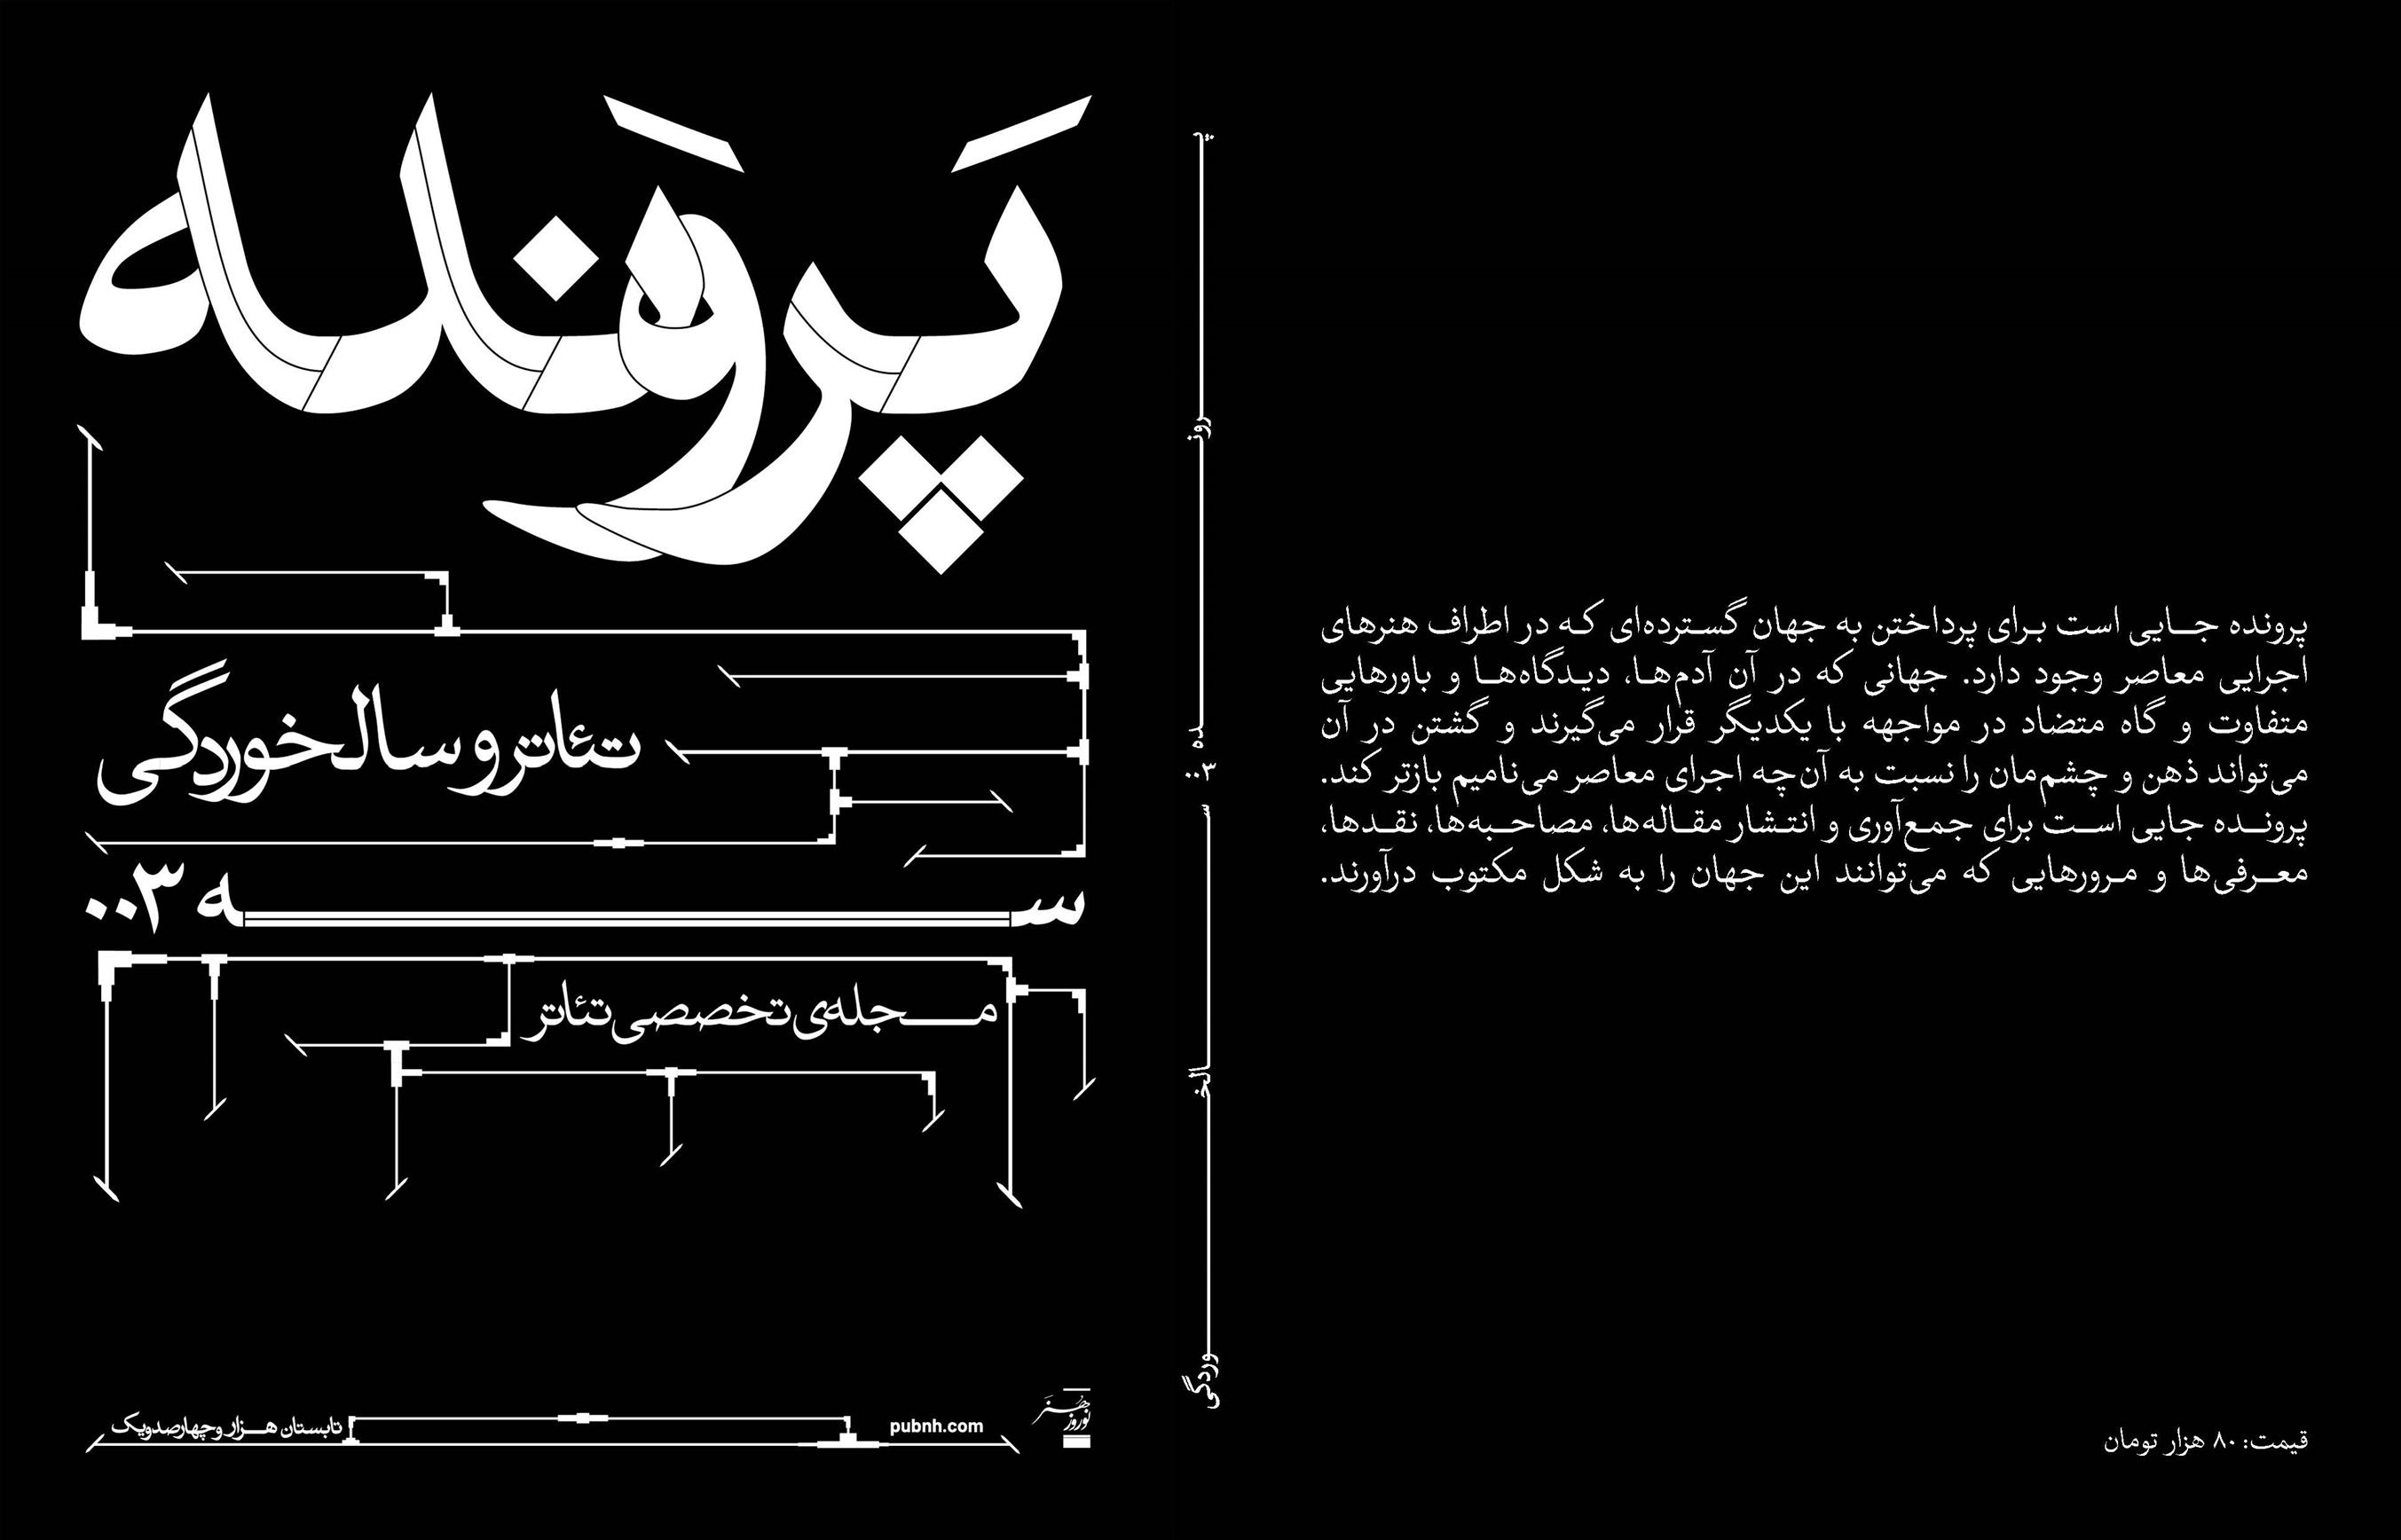 پَروَنده
تئاتر و سالخوردگی
سه ۰۰۳
مجله‌ی تخصصی تئاتر
تابستان هزار و چهارصد و یک
pubnh.com
نوروز هنر
پرونده ۰۰۳
سالخوردگی
پرونده جایی است برای پرداختن به جهان گسترده‌ای که در اطراف هنرهای
اجرایی معاصر وجود دارد. جهانی که در آن آدم‌ها، دیدگاه‌ها و باورهایی
متفاوت و گاه متضاد در مواجهه با یکدیگر قرار می‌گیرند و گشتن در آن
می‌تواند ذهن و چشم‌مان را نسبت به آن‌چه اجرای معاصر می‌نامیم بازتر کند.
پرونده جایی است برای جمع‌آوری و انتشار مقاله‌ها، مصاحبه‌ها، نقدها،
معرفی‌ها و مرورهایی که می‌توانند این جهان را به شکل مکتوب درآورند.
قیمت: ۸۰ هزار تومان